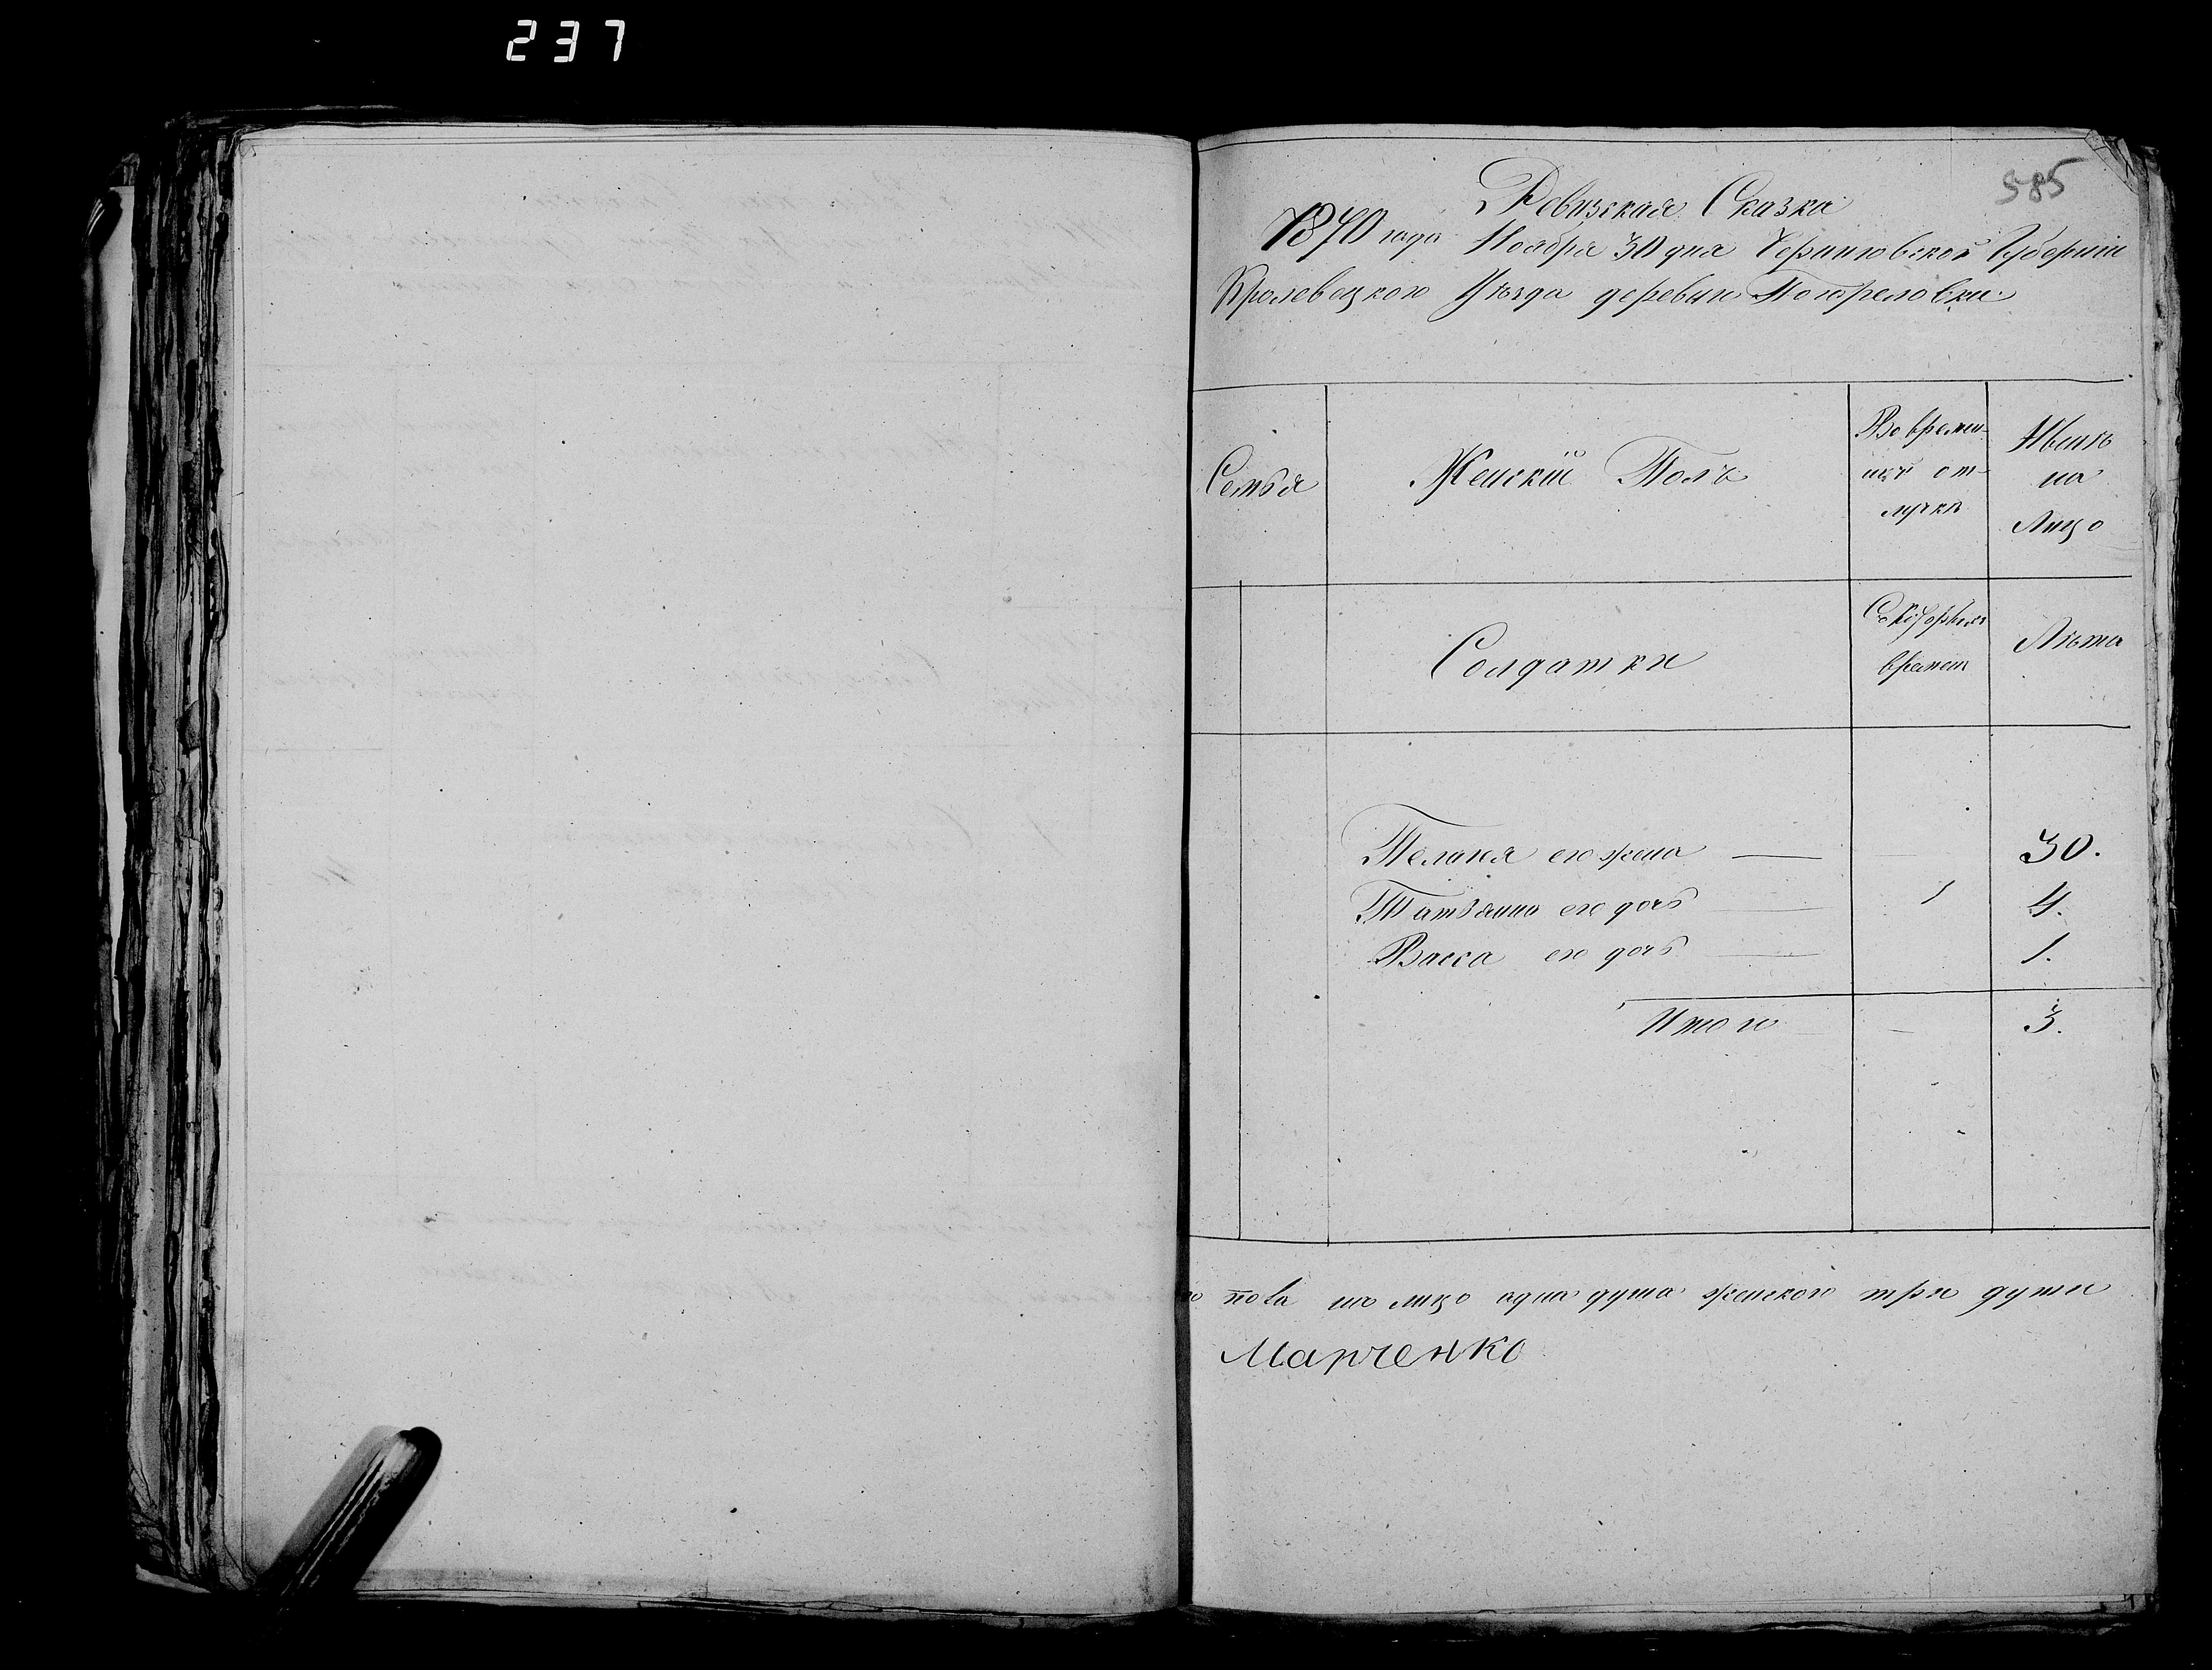 237
585
Ревизская Сказка
1870 года Ноября 30 дня Черниговской Губернии
Кролевецкого Уѣзда деревни Погореловки
Семья
Женскій Полъ
Во времен-
ной от-
лучкѣ
Нынѣ
на
Лицо
Солдатки
Съ которого
времени
Лѣта
Пелагея его жена — 30.
Татьяна его дочь — 4.
Васса его дочь — 1.
Итого — 3.
го пола на лицо одна душа женского три души
Марченко